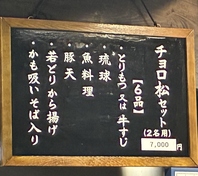 チョロ松セット
(2名用)
7,000円
【6品】
・とりもつ又は牛すじ
・琉球
・魚料理
・豚天
・若どりから揚げ
・かも吸いそば入り